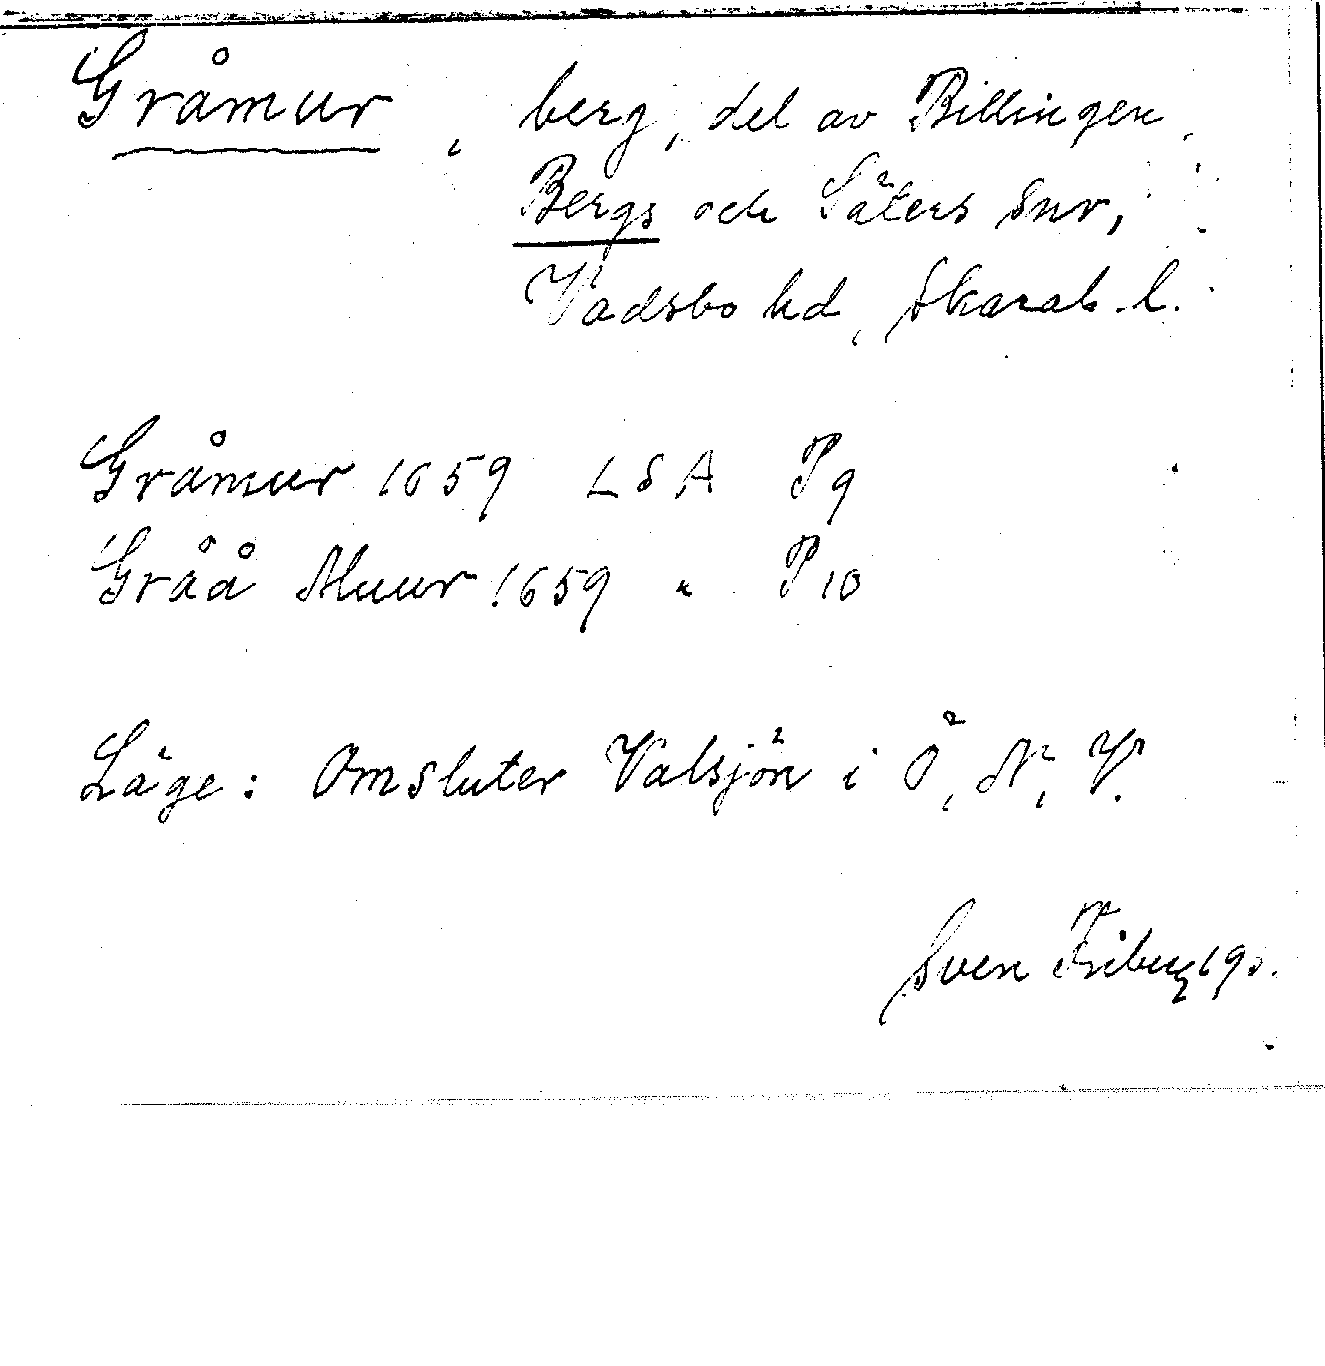 Gråmur, berg, del av Billingen,
Bergs och Säters snr,
Vadsbo hd, Skarab. l.
Gråmur 1659 LSA P9
Gråå Muur 1659 " P10
Läge: Omsluter Valsjön i Ö, N, V.
Sven Friberg